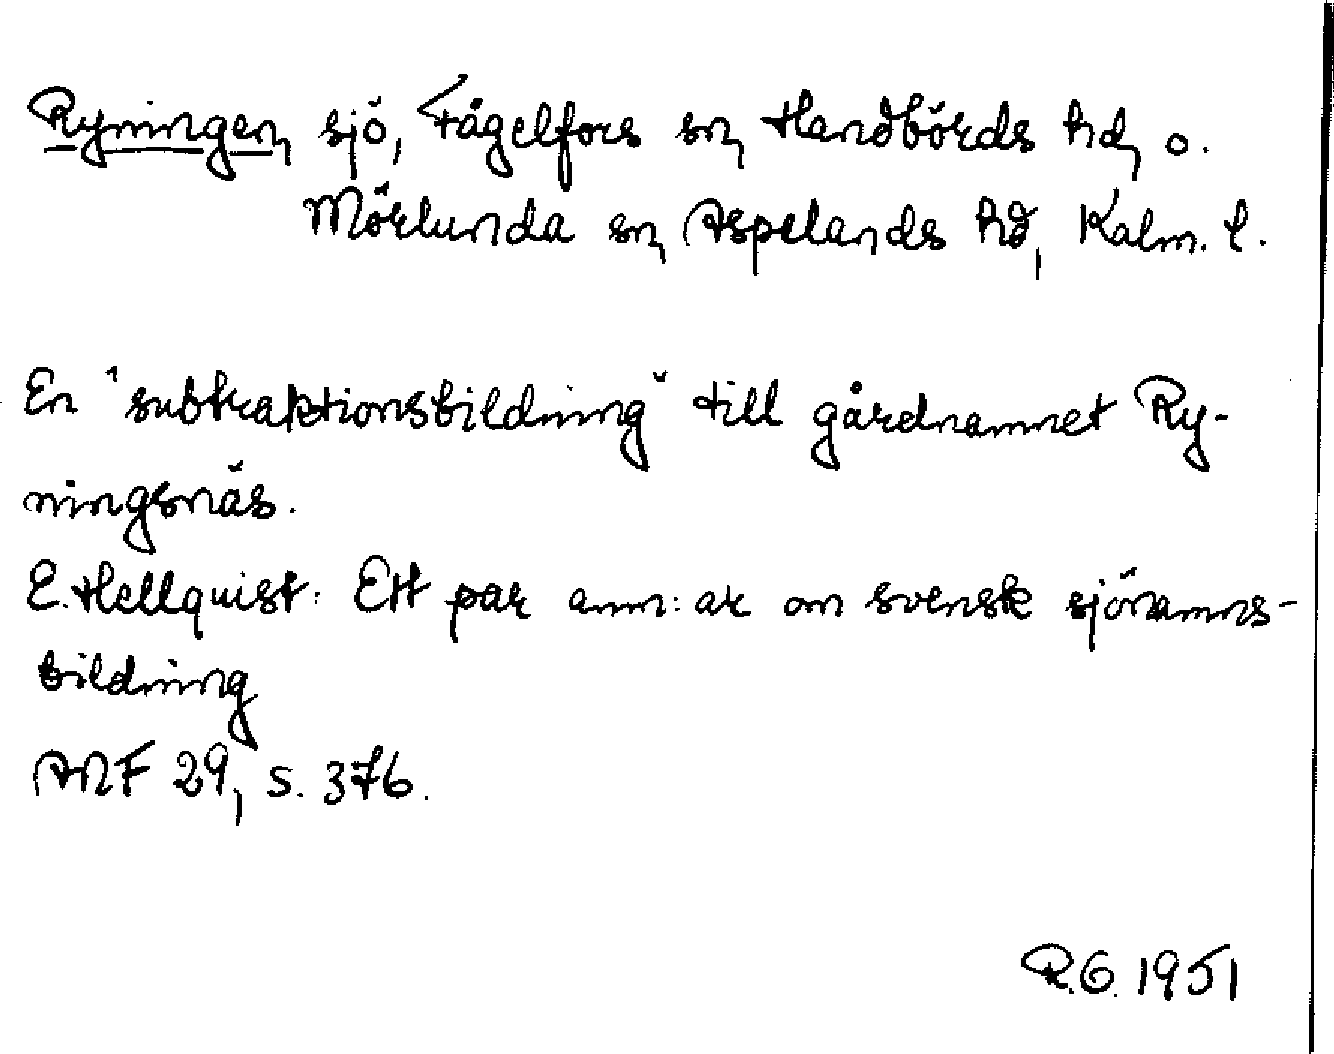 Ryningen, sjö, Fågelfors sn, Handbörds hd, o.
Mörlunda sn, Aspelands hd, Kalm. l.
En "subtraktionsbildning" till gårdnamnet Ry-
ningsnäs.
E. Hellquist: Ett par anm:ar om svensk sjönamns-
bildning
ANF 29, s. 376.
R.G. 1951